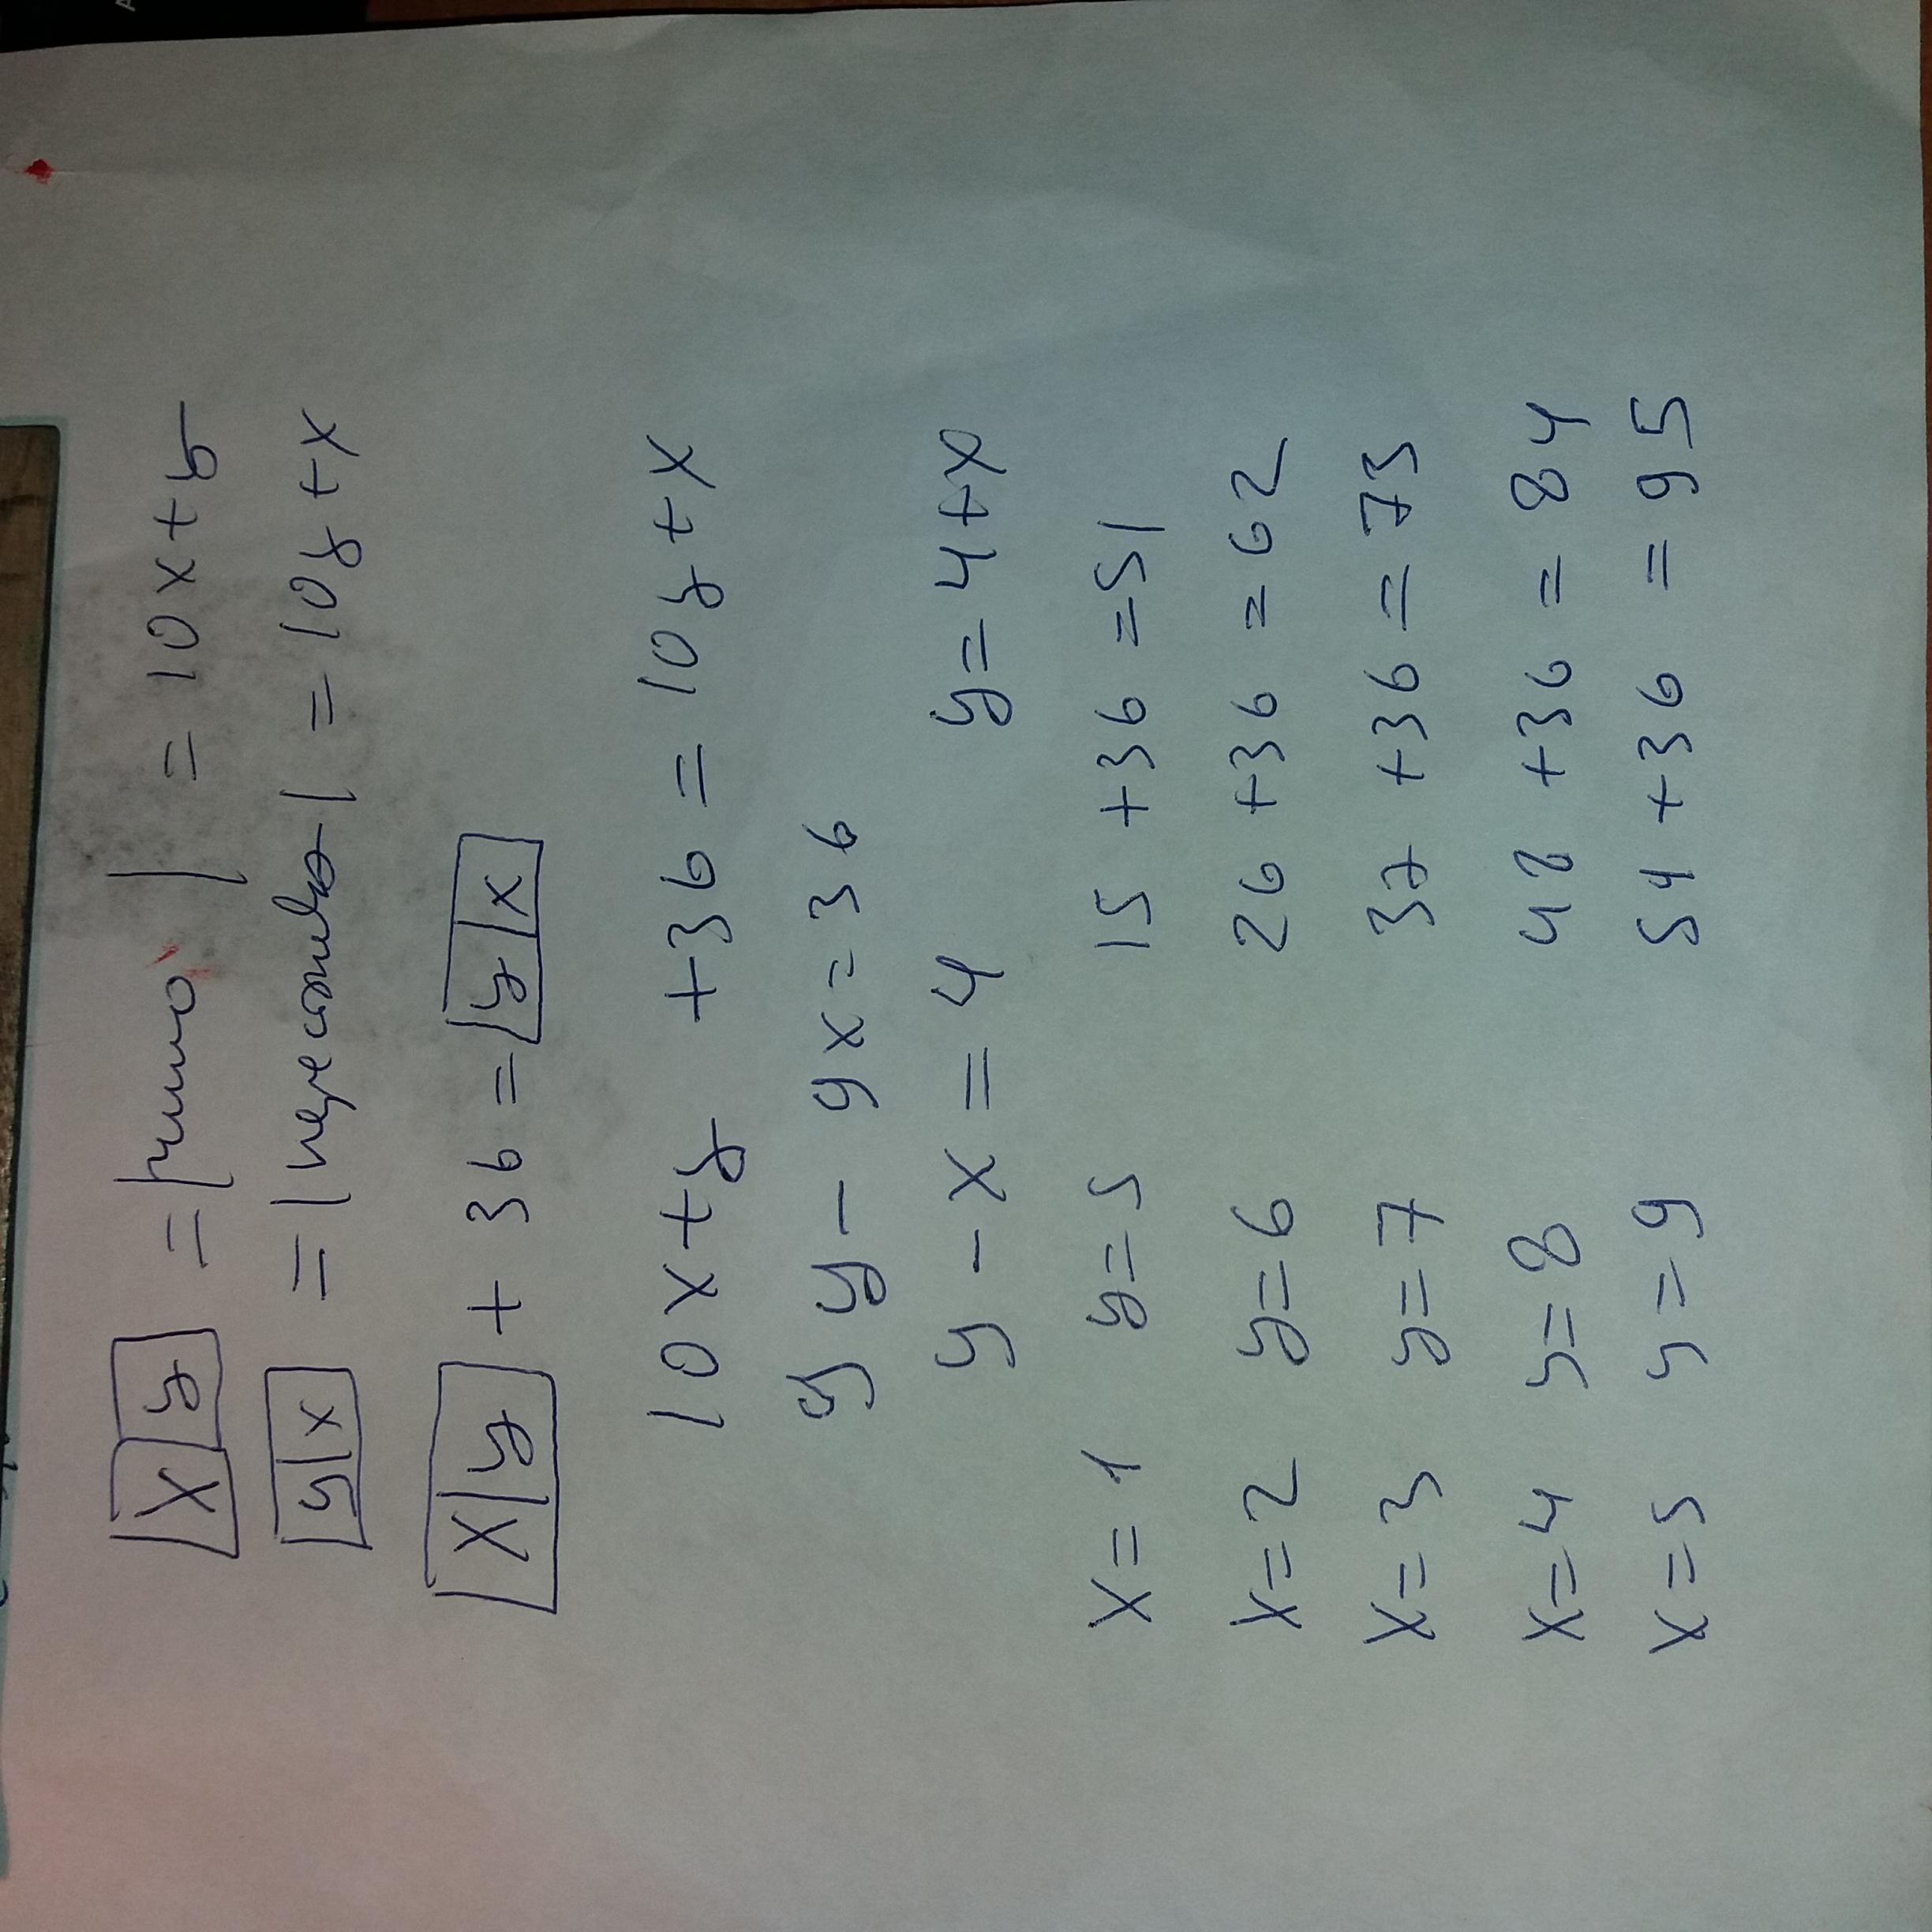 xy = |число| = 10x+y
yx = |перестав-| = 10y+x
xy + 36 = yx
10x+y +36 = 10y+x
9y - 9x = 36
y - x = 4 y = 4+x
x=1 y=5 15 +36 =51
x=2 y=6 26 +36 = 62
x=3 y=7 37 +36 = 73
x=4 y=8 48 +36 = 84
x=5 y=9 54 +36 = 95